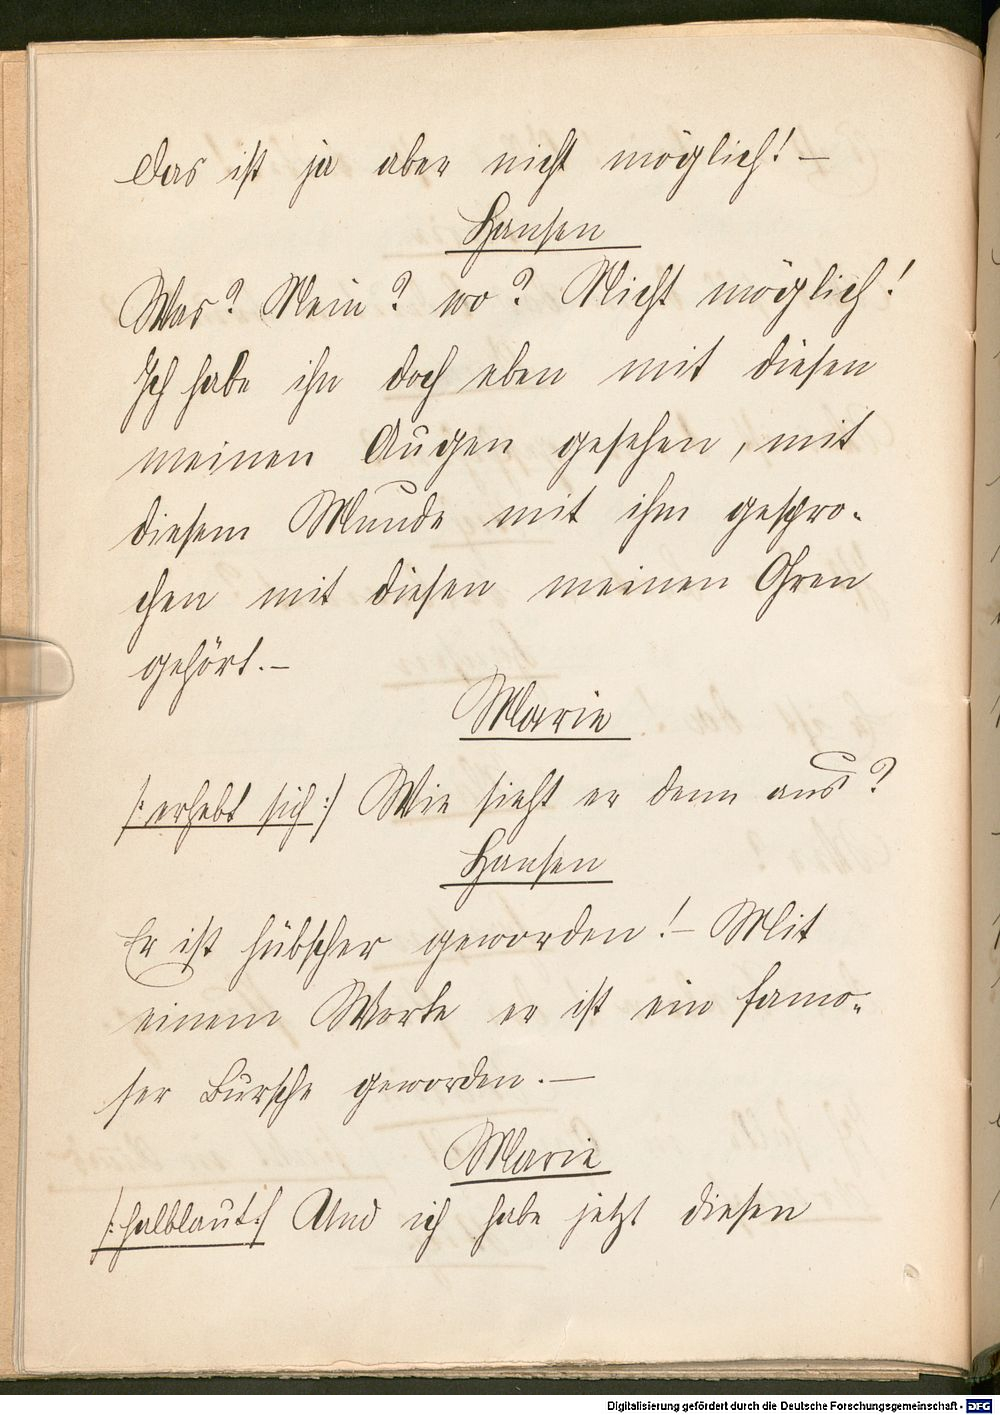 Das ist ja aber nicht möglich! –
Hansen
Was? Nein? wo? Nicht möglich!
Ich habe ihn doch eben mit diesen
meinen Augen gesehen, mit
diesem Munde mit ihm gespro-
chen mit diesen meinen Ohren
gehört. –
Marie
/: erhebt sich :/ Wie sieht er denn aus?
Hansen
Er ist hübscher geworden! – Mit
einem Worte er ist ein famo-
ser Bursche geworden. –
Marie
/: halblaut :/ Und ich habe jetzt diesen
Digitalisierung gefördert durch die Deutsche Forschungsgemeinschaft - DFG